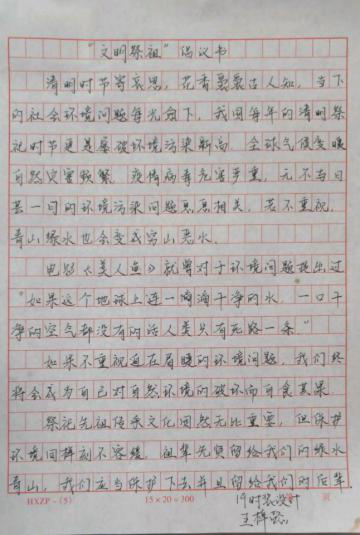 “文明祭祖”倡议书
清明时节寄哀思，花香袅袅古人知，当下
的社会环境问题每况愈下，我国每年的清明祭
祀时节更是屡破环境污染新高，全球气候变暖
自然灾害频繁，疫情病毒危害严重，无不与日
益一旬的环境污染问题息息相关，若不重视，
青山绿水也会变成穷山恶水。
电影《美人鱼》就曾对于环境问题提出过
“如果这个地球上连一滴滴干净的水，一口干
净的空气都没有的话人类只有死路一条”
如果不重视迫在眉睫的环境问题，我们终
将会成为自己对自然环境的破坏而自食其果。
祭祀先祖传承文化固然无比重要，但保护
环境同样刻不容缓，祖辈先贤留给我们的绿水
青山，我们应当保护下去并且留给我们的后辈。
HXZP－(5)
15×20＝300
19时装设计
页